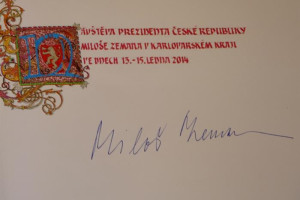 NÁVŠTĚVA PREZIDENTA ČESKÉ REPUBLIKY
MILOŠE ZEMANA V KARLOVARSKÉM KRAJI
VE DNECH 13.-15. LEDNA 2014
Miloš Zeman